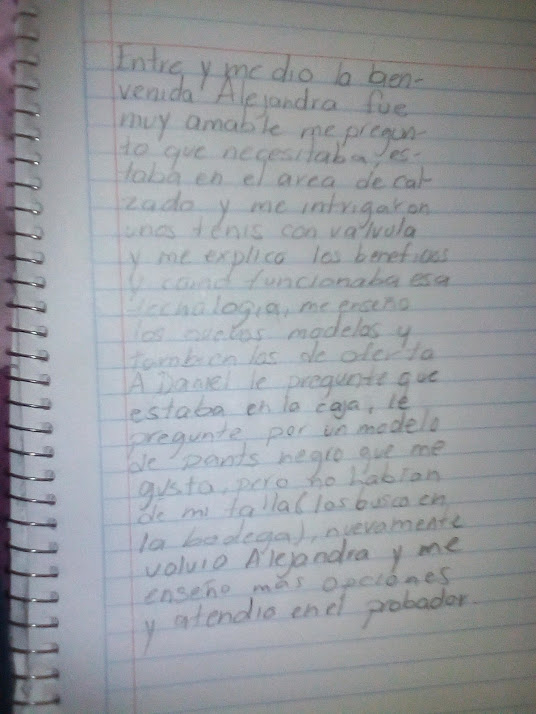 Entre y me dio la bien-
venida Alejandra fue
muy amable me pregun-
to que necesitaba, es-
taba en el area de cal-
zado y me intrigaron
unos tenis con valvula
y me explico los beneficios
y como funcionaba esa
tecnologia, me enseño
los nuevos modelos y
tambien los de oferta
A Daniel le pregunte que
estaba en la caja, le
pregunte por un modelo
de pants negro que me
gusta, pero no habian
de mi talla (los busco en
la bodega), nuevamente
volvio Alejandra y me
enseño más opciones
y atendio en el probador.